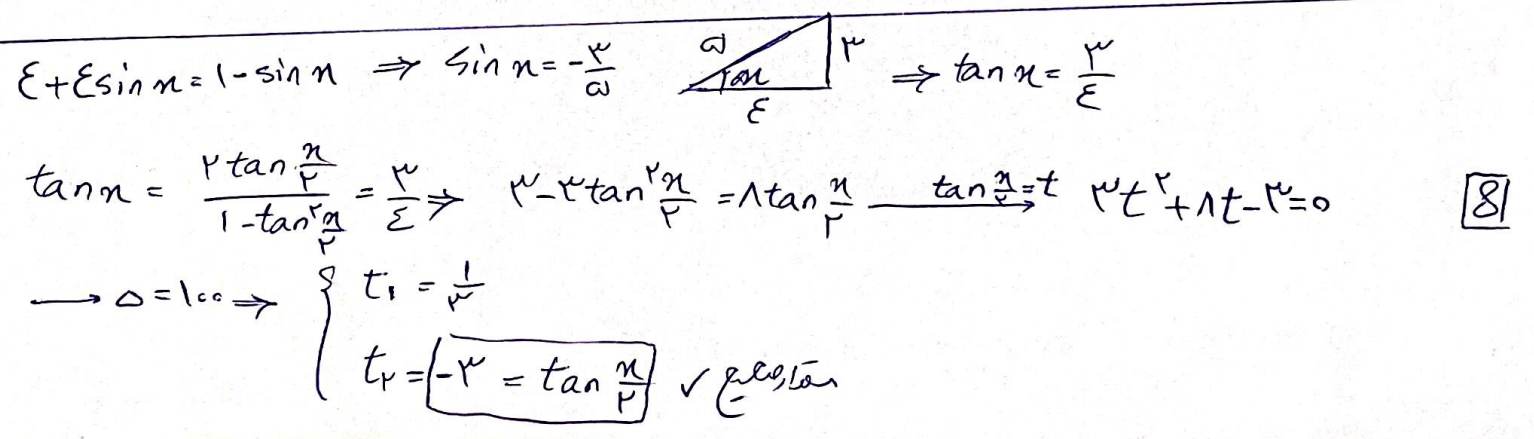 ۴+۴sin x = ۱-sin x ⇒ sin x = -۳/۵ ۵ ۳ ۴ ⇒ tan x = ۳/۴
tan x = ۲tan x/۲ / ۱-tan²x/۲ = ۳/۴ ⇒ ۳-۳tan²x/۲ = ۸tan x/۲ tan x/۲=t ۳t²+۸t-۳=۰ 8
→ Δ=۱۰۰ ⇒ { t₁ = ۱/۳
t₂ = -۳ = tan x/۲ ✓